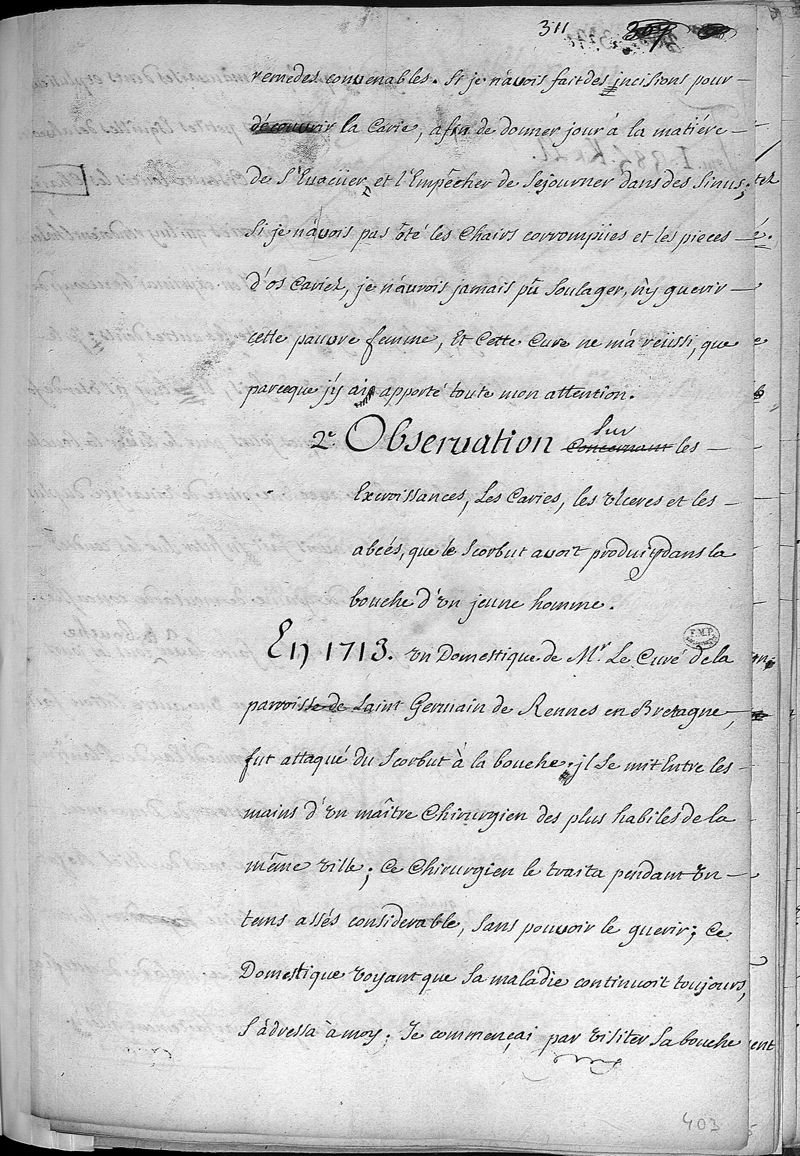 311
remedes convenables. Si je n'avois fait des incisions pour
découvrir la Carie, afin de donner jour à la matiére
de S'Evacüer, et l'Empêcher de Sejourner dans des Sinus;
Si je n'avois pas ôté les Chairs corrompües et les pieces
d'os Cariez, je n'aurois jamais pû Soulager, n'y guerir
cette pauvre femme, Et Cette Cure ne m'a réussi, que
parceque j'y ai apporté toute mon attention.
2e. Observation Sur Concernant les
Excroissances, Les Caries, les Ulceres et les
abcés, que le Scorbut avoit produit dans la
bouche d'un jeune homme.
En 1713. un Domestique de Mr. Le Curé de la
parroisse de Saint Germain de Rennes en Bretagne,
fut attaqué du Scorbut à la bouche; jl Se mit Entre les
mains d'un maître Chirurgien des plus habiles de la
même ville; Ce Chirurgien le traita pendant un
tems assés considerable, Sans pouvoir le guerir; Ce
Domestique voyant que Sa maladie continuoit toujours,
S'adressa à moy. Je commençai par visiter Sa bouche
403